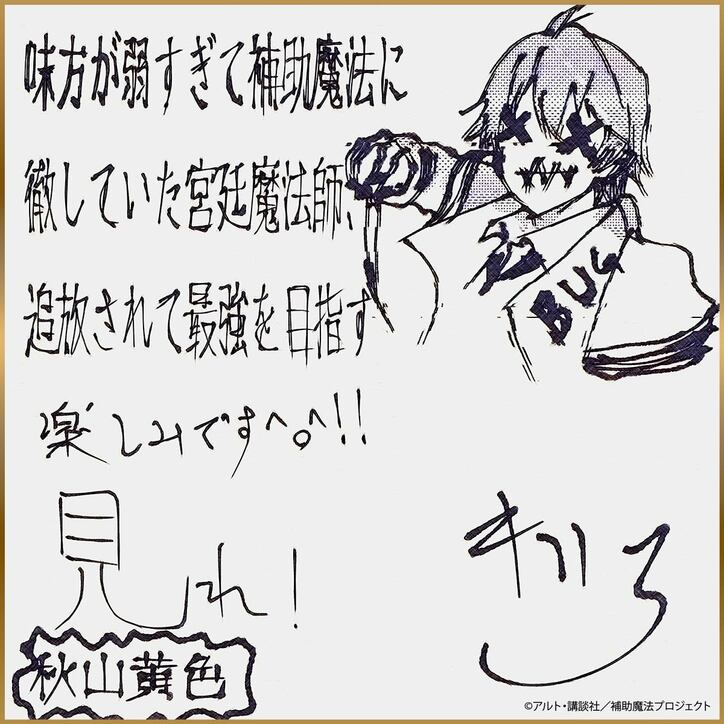 味方が弱すぎて補助魔法に
徹していた宮廷魔法師、
追放されて最強を目指す
楽しみです^o^!!
見れ!
秋山黄色
BUG
©アルト・講談社／補助魔法プロジェクト